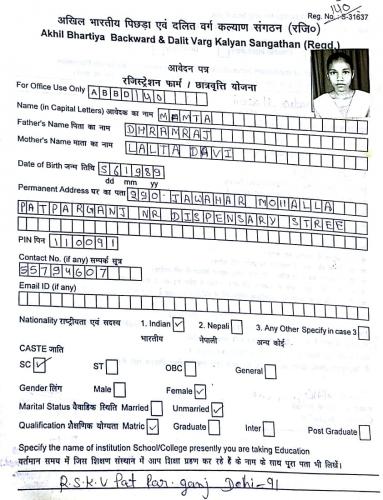 140
Reg. No.: S-31637
अखिल भारतीय पिछड़ा एवं दलित वर्ग कल्याण संगठन (रजि०)
Akhil Bhartiya Backward & Dalit Varg Kalyan Sangathan (Regd.)
आवेदन पत्र
रजिस्ट्रेशन फार्म / छात्रवृत्ति योजना
For Office Use Only ABBD 140
Name (in Capital Letters) आवेदक का नाम MAMTA
Father's Name पिता का नाम DHRAMRAJ
Mother's Name माता का नाम LALTA DAVI
Date of Birth जन्म तिथि 5 6 1989
dd mm yy
Permanent Address घर का पता 290- JAWAHAR MOHALLA
PATPARGANJ NR DISPENSARY STREE
PIN पिन 110091
Contact No. (if any) सम्पर्क सूत्र
55794607
Email ID (if any)
Nationality राष्ट्रीयता एवं सदस्य 1. Indian ✓ 2. Nepali 3. Any Other Specify in case 3
भारतीय नेपाली अन्य कोई
CASTE जाति
SC ✓ ST OBC General
Gender लिंग Male Female ✓
Marital Status वैवाहिक स्थिति Married Unmarried ✓
Qualification शैक्षणिक योग्यता Matric ✓ Graduate Inter Post Graduate
Specify the name of institution School/College presently you are taking Education
वर्तमान समय में जिस शिक्षण संस्थान में आप शिक्षा ग्रहण कर रहे हैं के नाम के साथ पूरा पता भी लिखें।
R.S.K.V Pat Par. ganj Delhi-91